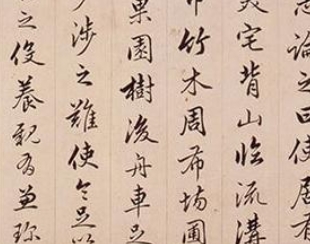 論之曰使居有
宅背山臨流溝
帀竹木周布場圃
果園樹後舟車足
涉之難使令足以
之役養親有兼珍